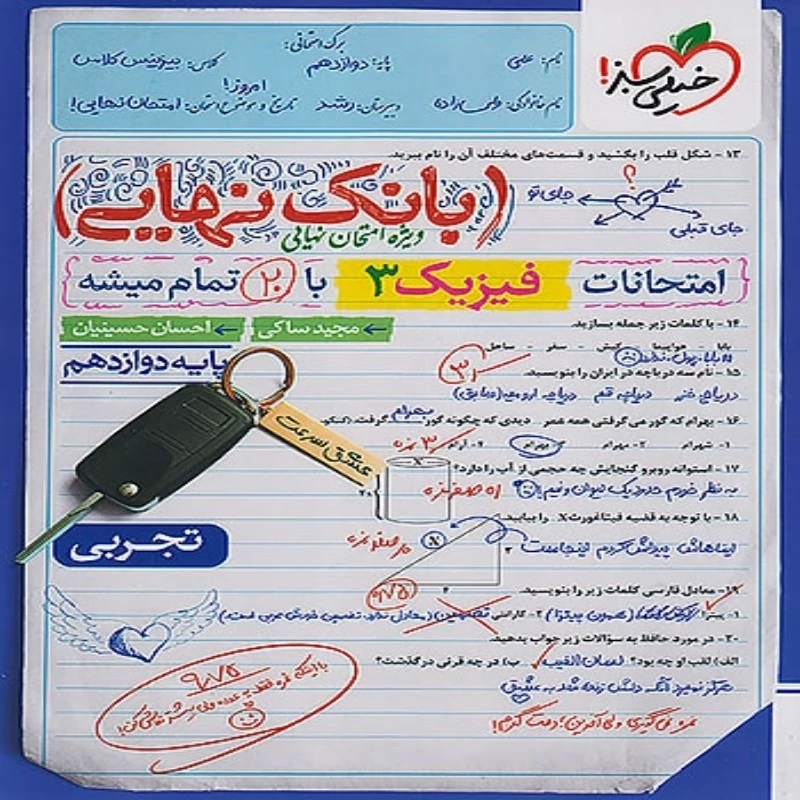 خیلی سبز!
برگ امتحانی:
نام: علی
پایه: دوازدهم
کلاس: بیزینس کلاس
نام خانوادگی:
دبیرستان: رشد
تاریخ و موضوع امتحان: امتحان نهایی!
امروز!
۱۳ - شکل قلب را بکشید و قسمت‌های مختلف آن را نام ببرید.
؟
جای تو
جای قبلی
(بانک نهایی)
ویژه امتحان نهایی
امتحانات فیزیک ۳ با ۲۰ تمام میشه
۱۴ - با کلمات زیر جمله بسازید.
مجید ساکی
احسان حسینیان
بابا - هواپیما - کیش - سفر - ساحل
بابا پول نداره
پایه دوازدهم
۱۵ - نام سه دریاچه در ایران را بنویسید.
دریای خزر دریاچه قم دریاچه ارومیه (سابق)
۱۶ - بهرام که گور می گرفتی همه عمر دیدی که چگونه گور بهرام گرفت. (کنکور
۱- شهرام ۲- مهرام ۳- بهرام ۴- آرام
۳ نمره
عشق سرعت
۱۷ - استوانه روبرو گنجایش چه حجمی از آب را دارد؟
X
۲۰
به نظر خودم حدود یک لیوان و نیم!
۱۸ - با توجه به قضیه فیثاغورث X را بیابید.
ایناهاش پیداش کردم اینجاست
X
۳
۴
تجربی
۱۹- معادل فارسی کلمات زیر را بنویسید.
۱- پیتزا (همون پیتزا) ۲- گارانتی تضمین
۲۰- در مورد حافظ به سؤالات زیر جواب بدهید.
الف) لقب او چه بود؟ لسان الغیب ب) در چه قرنی درگذشت؟
هرگز نمیرد آنکه دلش زنده شد به عشق
۹/۷۵
نمره نمی‌گیری ولی آفرین؛ دمت گرم!